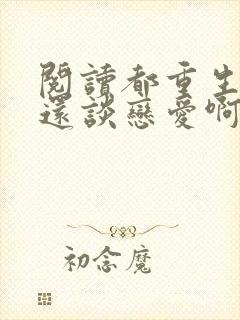 閱讀都重生
還談戀愛啊
初念魔